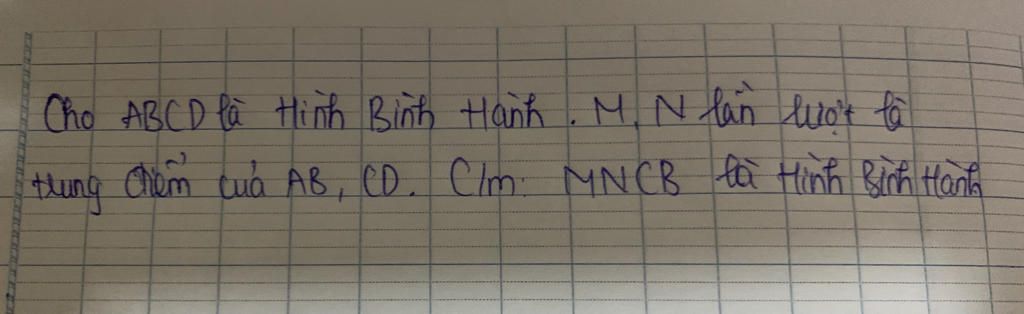 Cho ABCD là Hình Bình Hành. M, N lần lượt là
trung điểm của AB, CD. C/m: MNCB là Hình Bình Hành